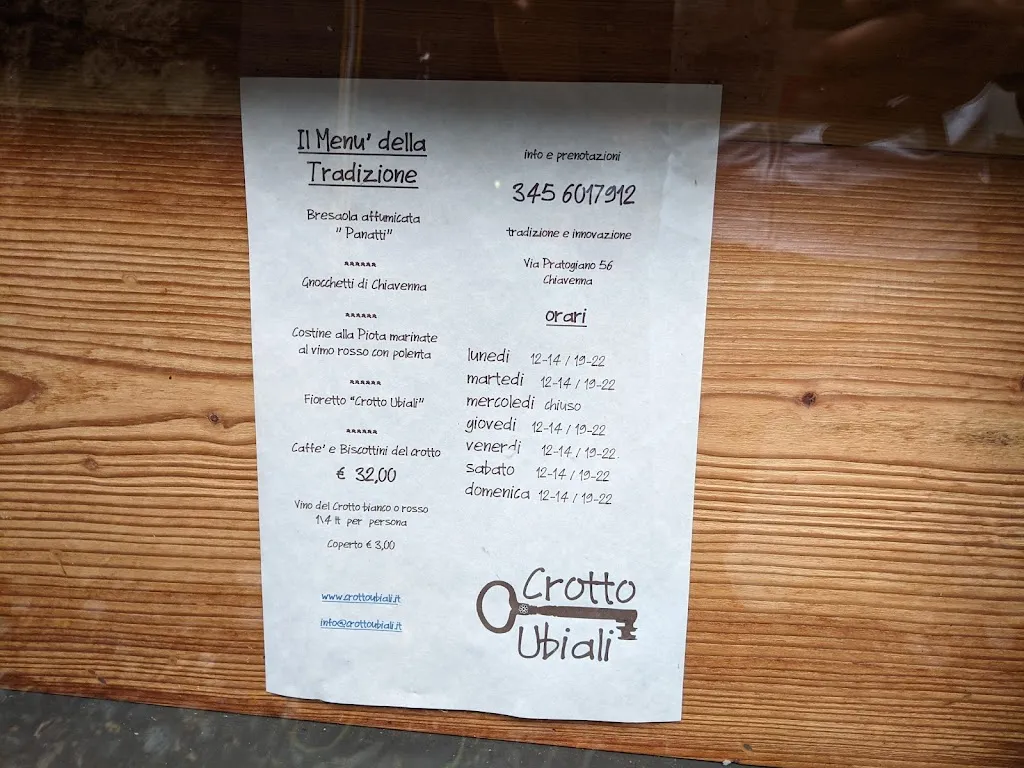 Il Menu' della
Tradizione
Bresaola affumicata
" Panatti"
******
Gnocchetti di Chiavenna
******
Costine alla Piota marinate
al vimo rosso con polenta
******
Fioretto "Crotto Ubiali"
******
Caffe' e Biscottini del crotto
€ 32,00
Vino del Crotto bianco o rosso
1\4 lt per persona
Coperto € 3,00
www.crottoubiali.it
info@crottoubiali.it
info e prenotazioni
345 6017912
tradizione e innovazione
Via Pratogiano 56
Chiavenna
orari
lunedi 12-14 / 19-22
martedi 12-14 / 19-22
mercoledi chiuso
giovedi 12-14 / 19-22
venerdi 12-14 / 19-22.
sabato 12-14 / 19-22
domenica 12-14 / 19-22
Crotto
Ubiali